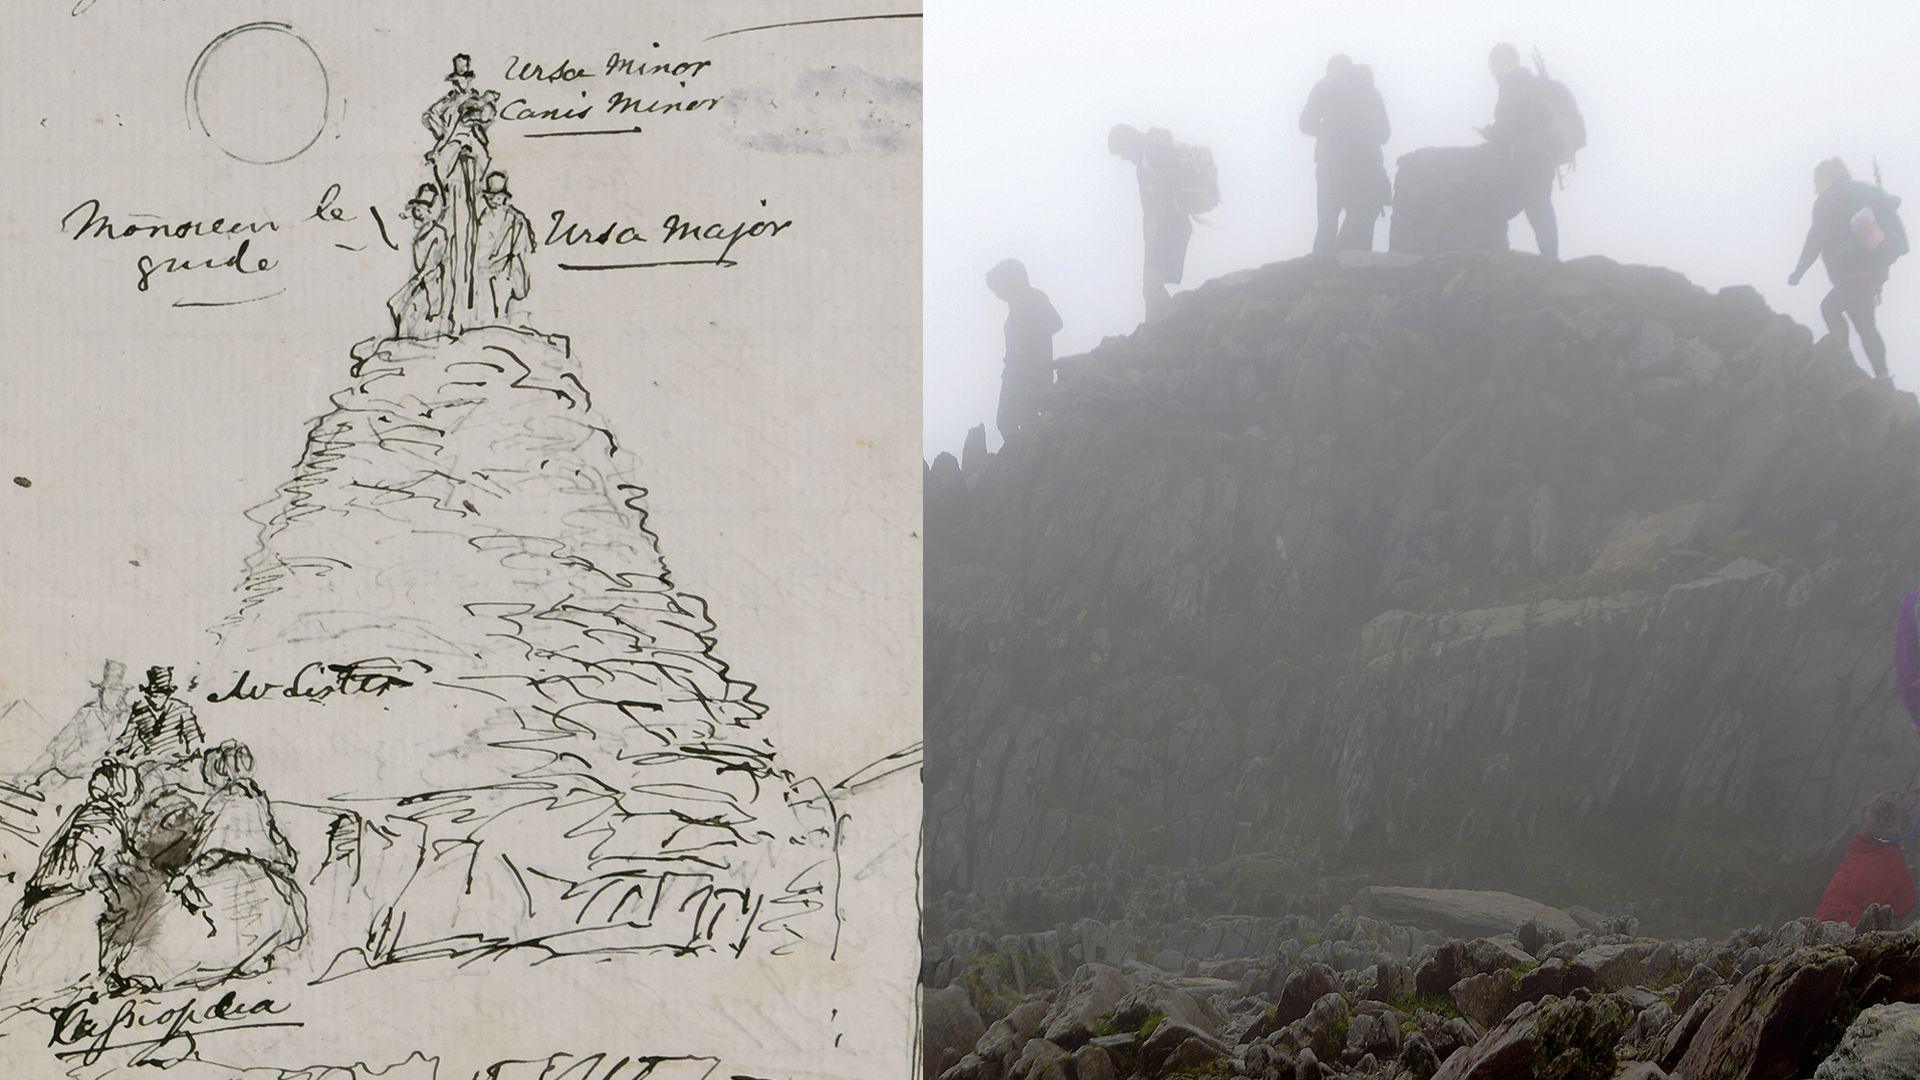 Ursa Minor
Canis Minor
Monsieur le
guide
Ursa Major
Cassiopœia